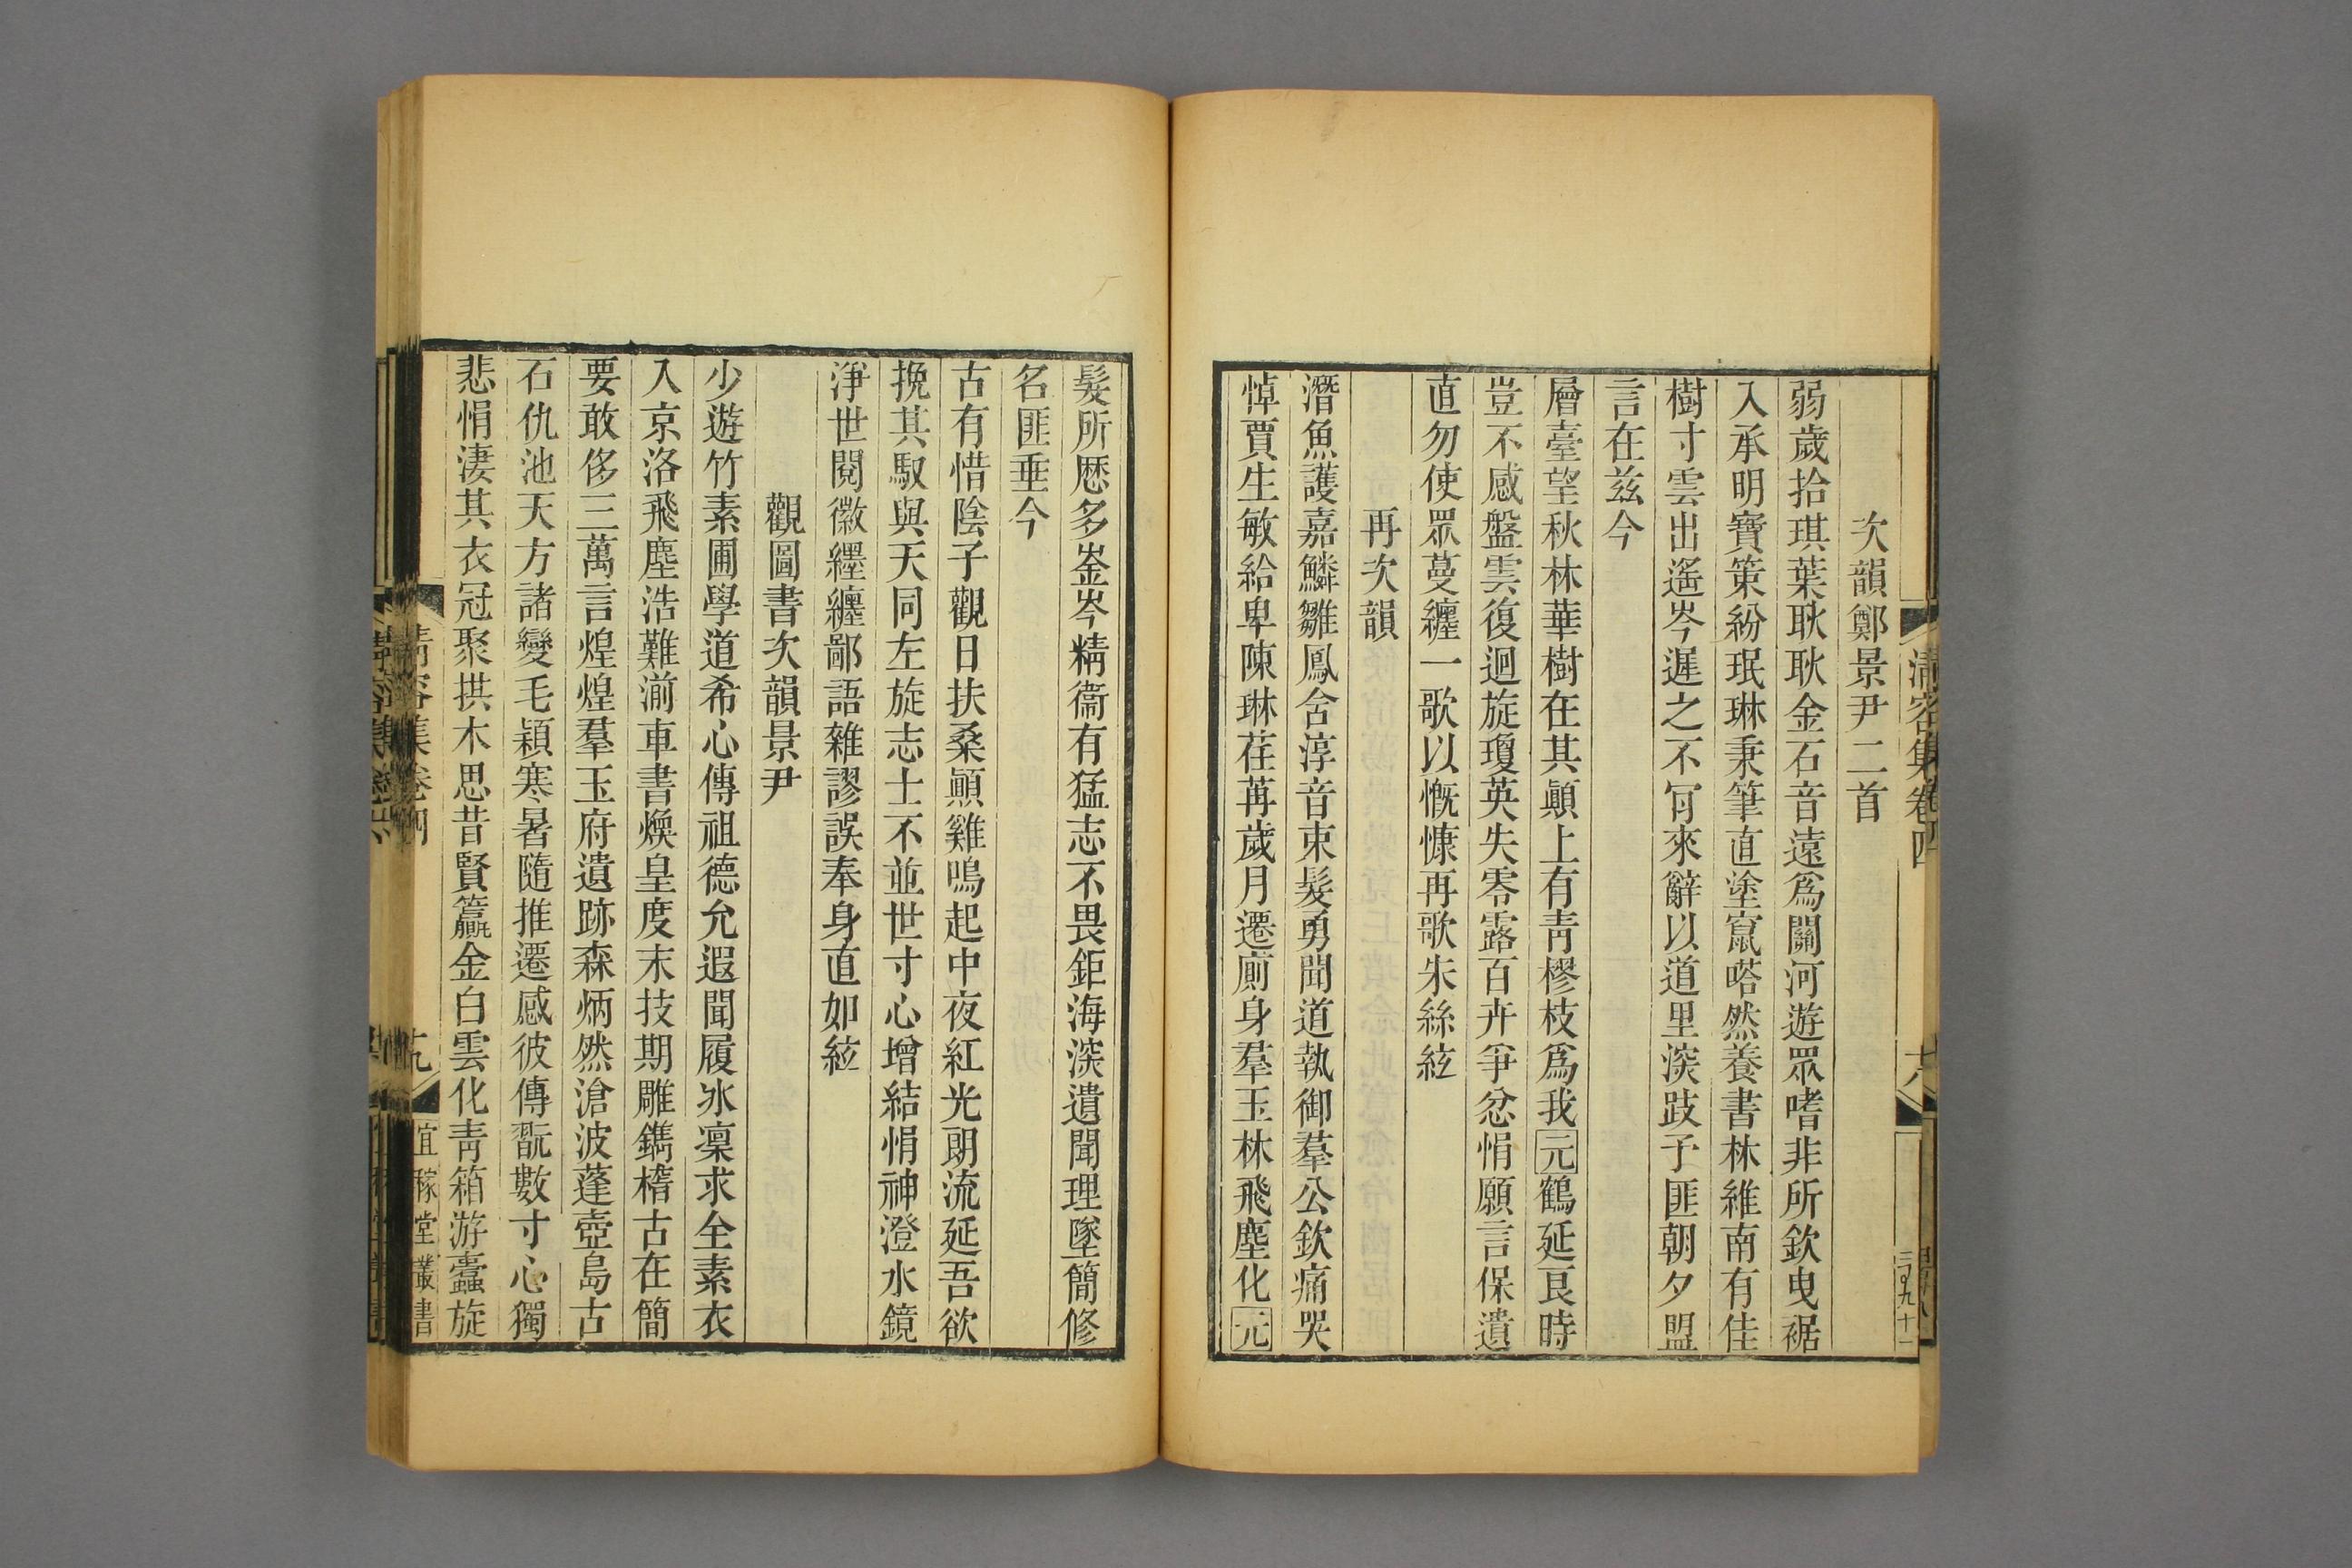 清容集卷四
次韻鄭景尹二首
弱歲拾琪葉耿耿金石音遠爲關河遊眾嗜非所欽曳裾
入承明寶策紛珉琳秉筆直塗竄嗒然養書林維南有佳
樹寸雲出遙岑遲之不肎來辭以道里深跂予匪朝夕盟
言在兹今
層臺望秋林華樹在其顚上有青樛枝爲我元鶴延艮時
豈不感盤雲復迴旋瓊英失零露百卉爭忿悁願言保遺
直勿使眾蔓纏一歌以慨慷再歌朱絲絃
再次韻
潛魚護嘉鱗雛鳳含淳音束髮勇聞道執御羣公欽痛哭
悼賈生敏給卑陳琳荏苒歲月遷廁身羣玉林飛塵化元
髮所歷多崟岑精衞有猛志不畏鉅海深遺聞理墜簡修
名匪垂今
古有惜陰子觀日扶桑顚雞鳴起中夜紅光朗流延吾欲
挽其馭與天同左旋志士不並世寸心增結悁神澄水鏡
淨世閱徽纆纏鄙語雜謬誤奉身直如絃
觀圖書次韻景尹
少遊竹素圃學道希心傳祖德允遐聞履冰凜求全素衣
入京洛飛塵浩難湔車書煥皇度末技期雕鐫稽古在簡
要敢侈三萬言煌煌羣玉府遺跡森炳然滄波蓬壺島古
石仇池天方諸變毛穎寒暑隨推遷感彼傳翫數寸心獨
悲悁淒其衣冠聚拱木思昔賢籯金白雲化靑箱游蠹旋
清容集卷四
九
宜稼堂叢書